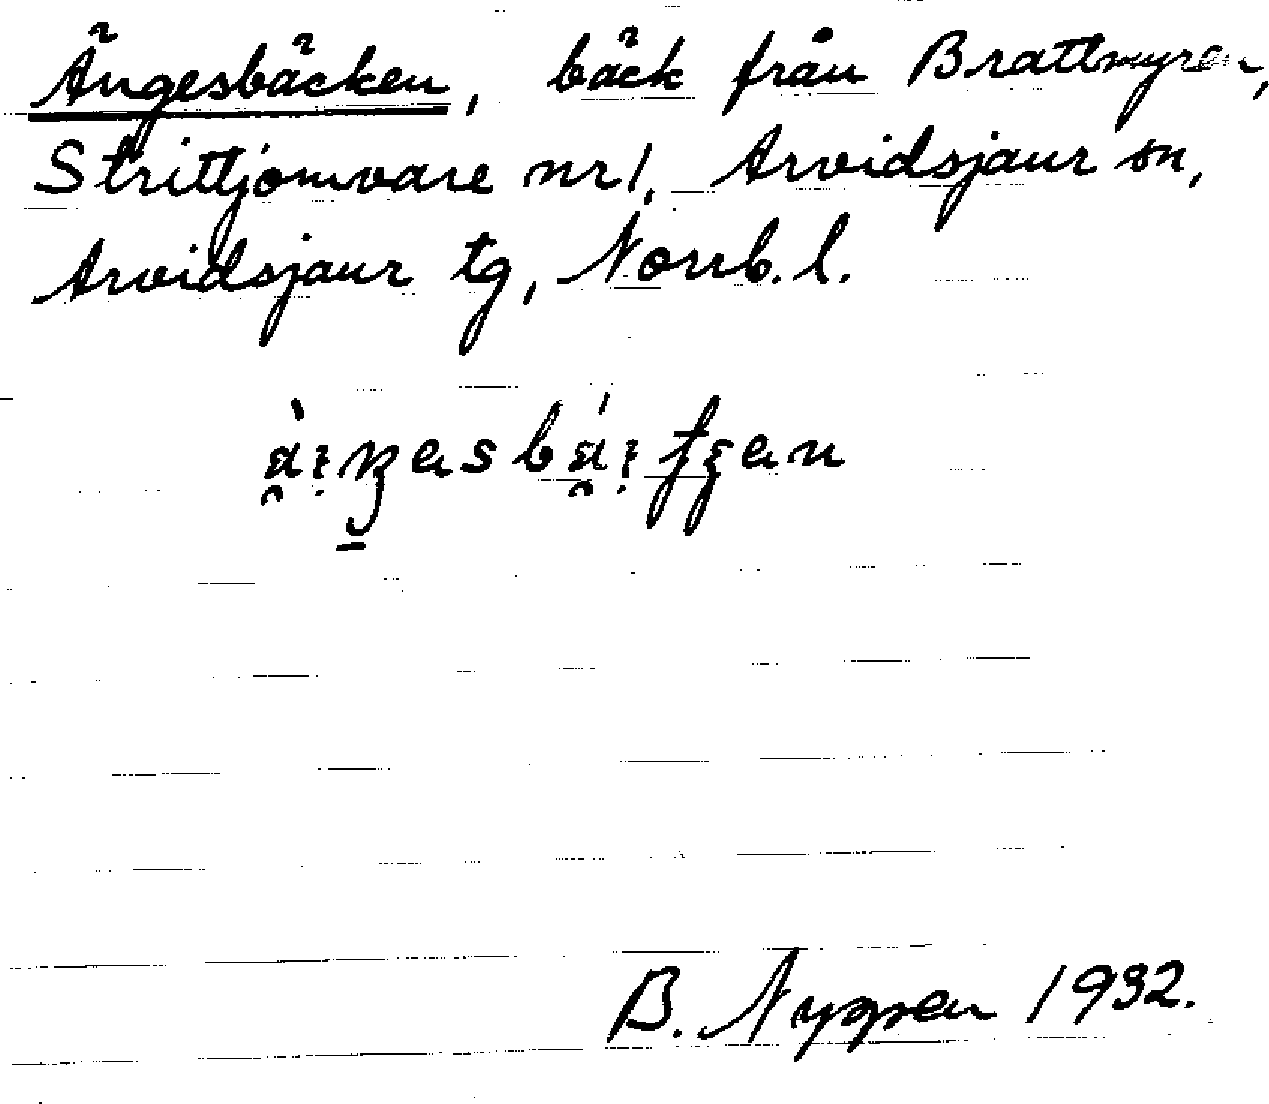 Ängesbäcken, bäck från Brattmyren,
Strittjomvare nr 1, Arvidsjaur sn,
Arvidsjaur tg, Norrb. l.
B. Nygren 1932.